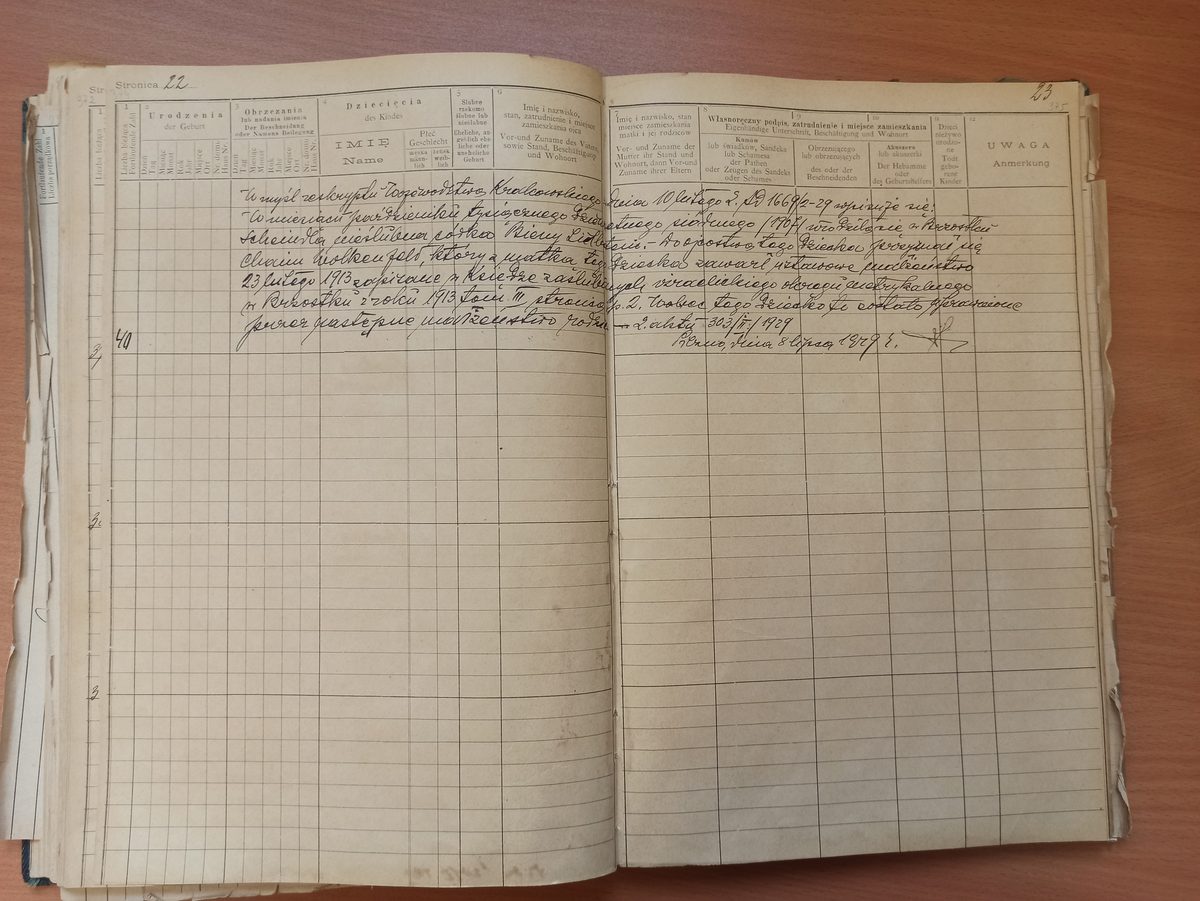 Stronica 22
23
375
372
1
Liczba bieżąca
Fortlaufende Zahl
2
Urodzenia
der Geburt
Dzień
Tag
Miesiąc
Monat
Rok
Jahr
Miejsce
Ort
Nr. domu
Haus Nr.
3
Obrzezania
lub nadania imienia
Der Beschneidung
oder Namens Beilegung
Dzień
Tag
Miesiąc
Monat
Rok
Jahr
Miejsce
Ort
Nr. domu
Haus Nr.
4
Dziecięcia
des Kindes
IMIĘ
Name
Płeć
Geschlecht
męska
männlich
żeńska
weiblich
5
Ślubne
rzekomo
ślubne lub
nieślubne
Eheliche, angeblich eheliche oder
uneheliche
Geburt
6
Imię i nazwisko,
stan, zatrudnienie i miejsce
zamieszkania ojca
Vor- und Zuname des Vaters,
sowie Stand, Beschäftigung
und Wohnort
Imię i nazwisko, stan
miejsce zamieszkania
matki i jej rodziców
Vor- und Zuname der
Mutter ihr Stand und
Wohnort, dann Vor-und
Zuname ihrer Eltern
8
9
10
Własnoręczny podpis, zatrudnienie i miejsce zamieszkania
Eigenhändige Unterschrift, Beschäftigung und Wohnort
Kumów
lub świadków, Sandeka
lub Schamesa
der Pathen
oder Zeugen des Sandeks
oder Schames
Obrzezującego
lub obrzezujących
des oder der
Beschneidenden
Akuszera
lub akuszerki
Der Hebamme
oder
des Geburtshelfers
11
Dzieci
nieżywo
urodzone
Todt
geborene
Kinder
12
UWAGA
Anmerkung
W myśl reskryptu Województwa Krakowskiego dnia 10 lutego L. AD 1669/2-29 wpisuje się:
W miesiącu październiku tysiącznego dziewiętnego siódmego /1907/ urodziła się w Brzostku
Scheindla nieślubna córka Bieny - Do ojcostwa tego dziecka przyznał się
Chaim Wolkenfeld, który z matką tego dziecka zawarł ustawowe małżeństwo
23 lutego 1913 zapisane w Księdze zaślubionych, izraelickiego okręgu metrykalnego
w Brzostku z roku 1913 tom III, stronica p. 2. Wobec tego dziecko to zostało
przez następne małżeństwo 303/II/1929
40
Pilzno, dnia 8 lipca 1929 r.
3
3
3